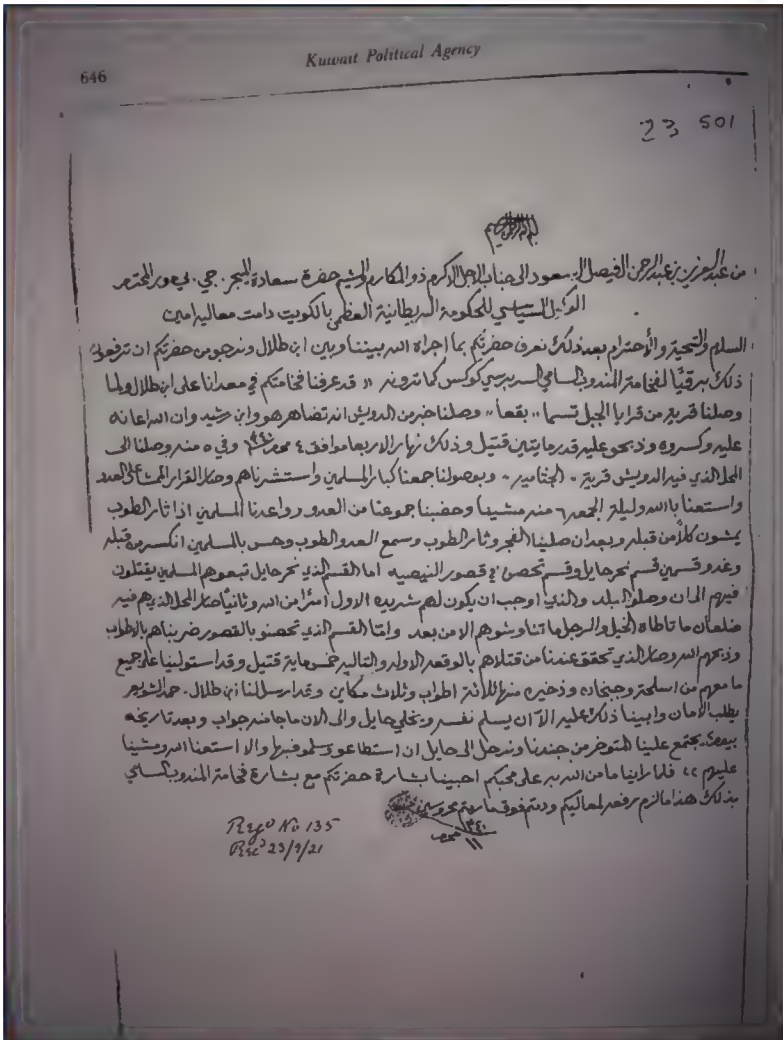 Kuwait Political Agency
646
501
بسم الله الرحمن الرحيم
من عبد العزيز بن عبد الرحمن الفيصل السعود الى جناب الاجل الاكرم ذو المكارم والشيم حضرة سعادة الميجر . جي . سي مور المحترم
الوكيل السياسي للحكومة البريطانية العظمى بالكويت دامت معاليه امين
السلام والتحية والأحترام بعد ذلك نعرف حضرتكم بما اجراه الله بيننا وبين ابن طلال ونرجو من حضرتكم ان ترفعوا
ذلك برقيًا لفخامة المندوب السامي السر برسي كوكس كما ترونه " قد عرفنا فخامتكم في معدانا على ابن طلال ولما
وصلنا قرية من قرايا الجبل تسما " بقعا " وصلنا خبر من الدويش انه تضاهر هو وابن رشيد وان الله اعانه
عليه وكسروه وذبحو عليه قدر مايتين قتيل وذلك نهار الاربعا موافق ٤ محرم ١٣٤٠ وفي ٥ منه وصلنا الى
المحل الذي فيه الدويش قرية - الجثامير - وبوصولنا جمعنا كبار المسلمين واستشرناهم وصار القرار الممشا على العدو
واستعنا باالله وليلة الجمعه ٦ منه مشينا جموعنا من العدو وواعدنا المسلمين اذا ثار الطوب
يمشون كلاً من قبله وبعد ان صلينا الفجر وثار الطوب وسمع العدو الطوب وحس بالمسلمين انكسر من قبله
وغدو قسمين قسم نحر حايل وقسم تحصن في قصور النيصيه اما القسم الذي نحر حايل تبعوهم المسلمين يقتلون
فيهم الى ان وصلو البلد والذي اوجب ان يكون لهم شريده الاول امرًا من الله وثانياً صار المحل الذي هم فيه
ضلعان ما تاطاه الخيل والرجل ما تناوشوهم الا من بعد وامّا القسم الذي تحصنو بالقصور ضربناهم بالاطواب
وذبحهم الله وصار الذي تحقق عندنا من قتلاهم بالوقعه الاوله والتاليه خمس ماية قتيل وقد استولينا على جميع
ما معهم من اسلحة وجبخانه وذخيره منها ثلاثة اطواب وثلاث مكاين وقد ارسل لنا ابن طلال . حمد الشويعر
يطلب الامان وابينا ذلك عليه الآ ان يسلم نفسه ويخلي حايل والى الان ما جا منه جواب وبعد تاريخه
يجتمع علينا المتوخر من جندنا ونرحل الى حايل ان استطاعو وسلمو فبها والا استعنا الله ومشينا
عليهم " فلما راينا ما من الله به على محبكم احبينا بشارة حضرتكم مع بشارة فخامة المندوب السامي
بذلك هذا ما لزم رفعه لمعاليكم ودمتم محروسين
١٣٤٠
محرم
١١
Regd No 135
Recd 23/9/21